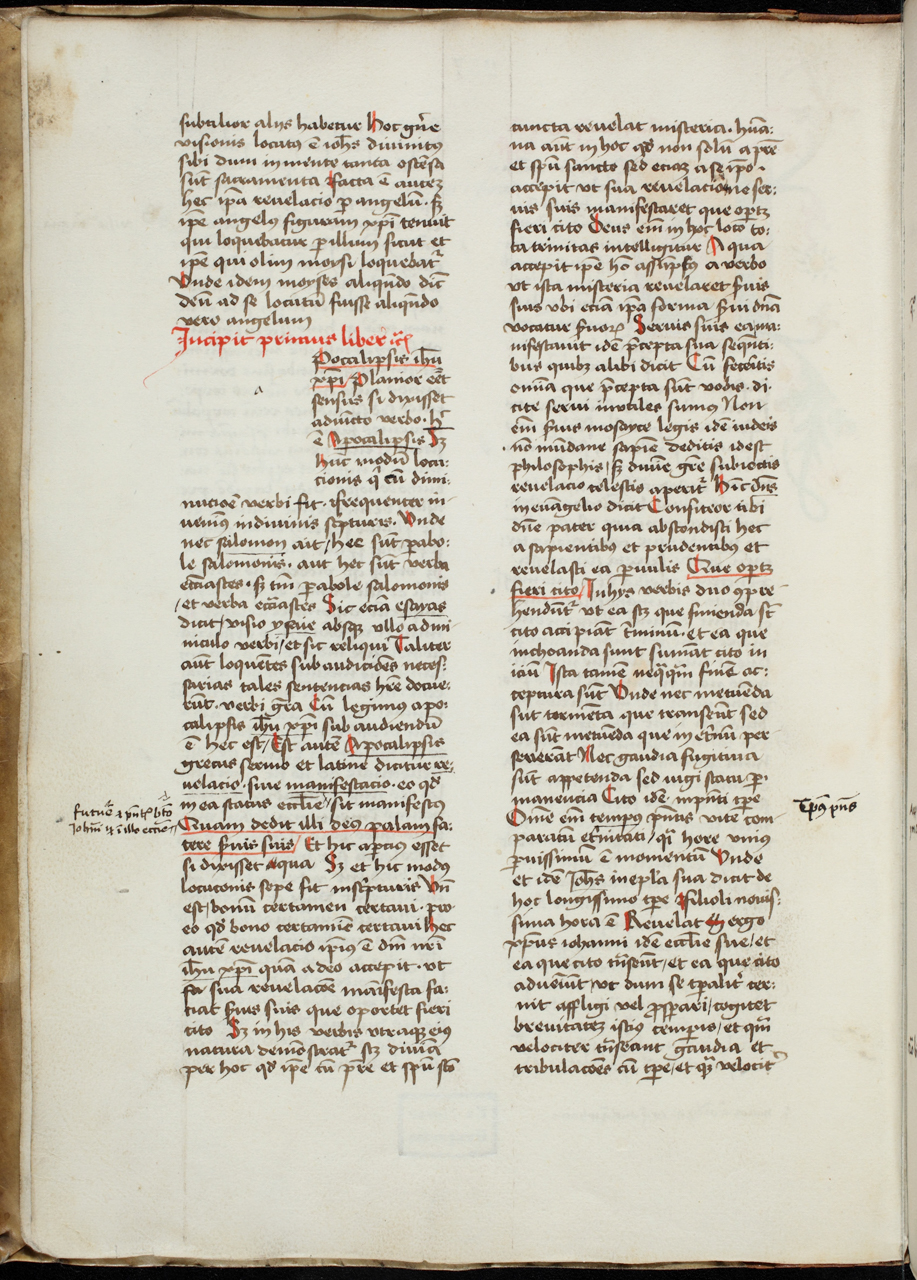 subtilior alijs habetur Hoc gn̄e
visionis locutꝰ ē ioh̄s diuinitꝰ
sibi dum in mente tanta ostēsa
sūt sacramenta Facta ē autez
hec ip̄a reuelacio ꝑ angelū. sꝫ
ip̄e angelꝰ figuram xp̄i tenuit
qui loquebatur ꝑ illum sicut et
ip̄e qui olim moysi loquebatr̃
Vnde idem moyses aliqn̄do dīc̄
deū ad se locutū fuisse aliqn̄do
vero angelum
Incipit primus liber
Apocalipsis ih̄u
xp̄i Planior eēt
sensus si dixisset
adiūcto verbo. h̄
ē Apocalipsis Sꝫ
huc modū locu:
cionis qͥ cū dimi:
nucōe verbi fit. frequenter in-
uenimꝰ in diuinis sc̄pturis. Vnde
nec salomon ait/ hec sūt ꝑabo:
le salomonis. aut hec sūt verba
ecc̄iastes. sꝫ tm̄ ꝑabole salomonis
/et verba ecc̄iastes Sic eciā esayas
dicit/ visio ysaie absqꝫ vllo admi
niculo verbi/ et sic reliqui Taliter
aūt loquētes subaudiēdes neces:
sarias tales sentencias hr̄e docue:
rūt. verbi gr̄a Cū legimus apo:
calipsis ih̄u xp̄i subaudiendū
ē hec est/ Est autē Apocalipsis
grecus sermo et latine dicitur re:
uelacio. siue manifestacio. eo qd̄
in ea status ecc̄lie/ sit manifestꝰ
Quam dedit illi deꝰ palam fa:
cere ẜuis suis/ Et hic apcius esset
si dixisset aqua Sꝫ et hic modꝰ
locucionis sepe fit in sc̄pturis Vn̄
est/ bonū certamen certaui. pro
eo qd̄ bono certamīe certaui Hec
autē reuelacio ip̄ius ē dn̄i nr̄i
ih̄u xp̄i quā a deo accepit. vt
sua reuelacōe māifesta fa:
ciat ẜuis suis que oportet fieri
cito Sꝫ in his verbis vtraqꝫ eiꝰ
natura demōstratr̃ scꝫ diuīa
per hoc qd̄ ip̄e cū pr̄e et spū sc̄o
futur̄ ⁊ pn̄t
Joh̄nī
cuncta reuelat misteria. hūa:
na aūt in hoc qd̄ non solū a pr̄e
et spū sancto sed eciaꝫ a se ip̄o.
accepit vt sua reuelacione ser:
uis suis manifestaret que oꝑtꝫ
fieri cito Deus em̄ in hoc loco to:
ta trinitas intelligitur A qua
accepit ip̄e hō assūptꝰ a verbo
vt ista misteria reuelaret ẜuis
suis vbi eciā ip̄a forma ẜui dn̄a
vocatur ẜuorꝫ Seruis suis ea ma:
nifestauit idē p̄cepta sua sequēti:
bus quibꝫ alibi dicit Cū feceritis
omīa que p̄cepta sūt vobis. di:
cite serui inutiles sumꝰ Non
em̄ ẜuis mosayce legis idē iudeis
nō mūdane sapiē deditis id est
philosophis/ sꝫ diuīe gr̄e subiectis
reuelacio celestis aperitr̃ Hīc dn̄s
in euāgelio dicit Confiteor tibi
dn̄e pater quia abscondisti hec
a sapientibꝰ et prudentibꝰ et
reuelasti ea ꝑuulis Que oꝑtꝫ
fieri cito/ In hijs verbis duo ꝯpre
hendūtr̃ vt ea scꝫ que finienda sūt
cito accipiant t̄minū. et ea que
inchoanda sunt sumāt cito in
iciū Ista tamē neqͣqͣm finē ac:
ceptura sūt Vnde nec metuēda
sūt tormēta que transeūt sed
ea sūt metuēda que in et̄nū per
seuerāt Nec gaudia fugitiua
sūt appetenda sed iugi statu ꝑ
manencia Cito idē. in pn̄ti tp̄e
Om̄e em̄ tempꝰ pn̄tis vite com
paratū et̄nitati/ qͣ hore vnius
ꝑuissimū ē momentū Vnde
et idē Joh̄s in ep̄la sua dicit de
hoc longissimo tp̄e Filioli nouis:
sima hora ē Reuelat ergo
xp̄us iohanni idē ecc̄lie sue/ et
ea que cito trāseūt/ et ea que cito
adueniūt/ vt dum se tp̄alitr̃ cer:
nit affligi vel ꝓsꝑari/ cogitet
breuitateꝫ istiꝰ temporis/ et qm̄
velociter trāseant gaudia et
tribulacōes cū tp̄e/ et qͣ velocit̄
Tp̄us pn̄s